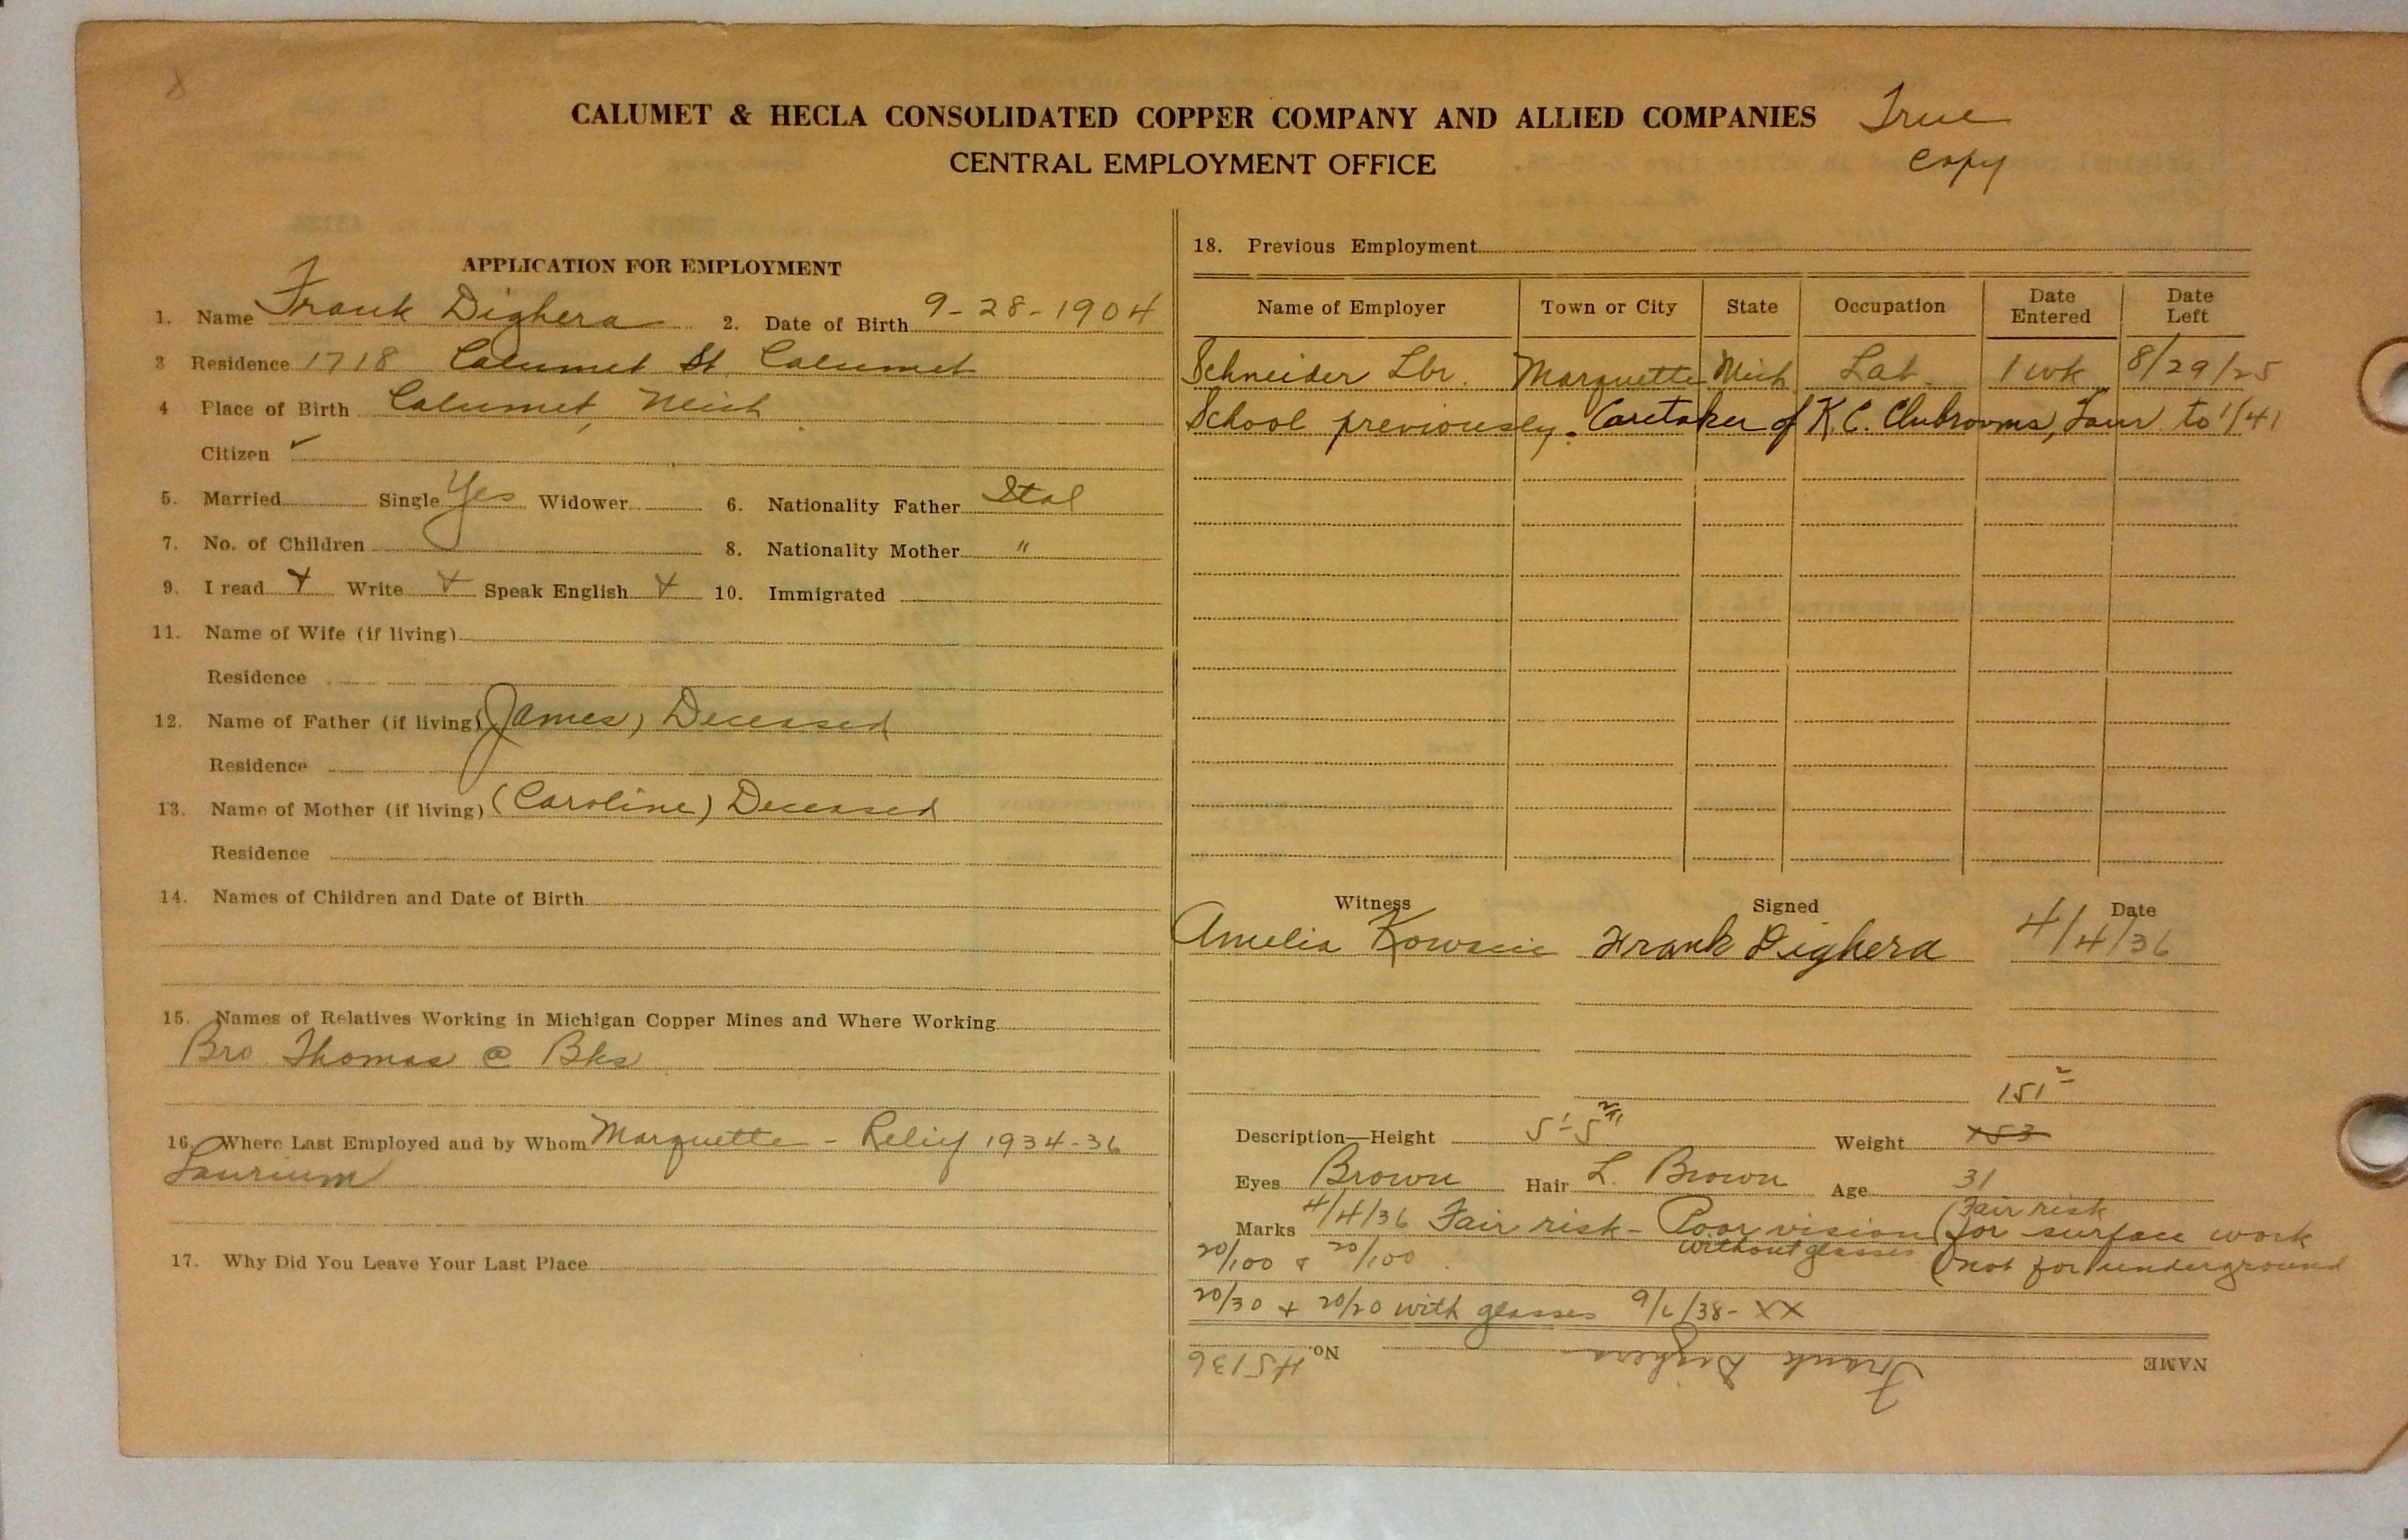 8
CALUMET & HECLA CONSOLIDATED COPPER COMPANY AND ALLIED COMPANIES True
CENTRAL EMPLOYMENT OFFICE copy
APPLICATION FOR EMPLOYMENT
1. Name Frank Dighera 2. Date of Birth 9-28-1904
3 Residence 1718 Calumet St Calumet
4 Place of Birth Calumet, Mich
Citizen ✓
5. Married Single Yes Widower 6. Nationality Father Ital
7. No. of Children 8. Nationality Mother "
9. I read Write Speak English 10. Immigrated
11. Name of Wife (if living)
Residence
12. Name of Father (if living) James) Deceased
Residence
13. Name of Mother (if living) (Caroline) Deceased
Residence
14. Names of Children and Date of Birth
15. Names of Relatives Working in Michigan Copper Mines and Where Working
Bro Thomas @ Bks
16. Where Last Employed and by Whom Marquette - Relief 1934-36
Laurium
17. Why Did You Leave Your Last Place
18. Previous Employment
Name of Employer Town or City State Occupation Date Entered Date Left
Schneider Lbr. Marquette Mich Lab. 1 wk 8/29/25
School previously. Caretaker of K.C. Clubrooms, Laur. to 1/41
Witness Signed Date
Amelia Frank Dighera 4/4/36
151
Description—Height 5' 5 Weight 153
Eyes Brown Hair L. Brown Age 31
Marks 4/4/36 Fair risk - Poor vision (Fair risk for surface work
20/100 & 20/100. without glasses (not for underground
20/30 + 20/20 with glasses 9/6/38- XX
NAME Frank Dighera No. 45136